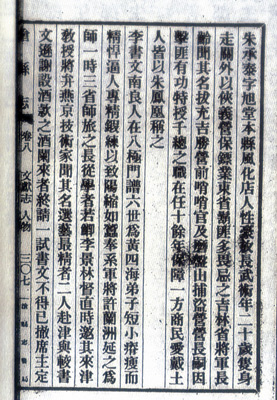 朱承泰字旭堂本縣風化店人性豪敏長武術年二十歲隻身
走關外以俠義營保鏢業東省鬍匪多畏忌之吉林省將軍長
齡聞其名拔充吉勝營前哨哨官及磨盤山捕盜營管長嗣因
擊匪有功特授千總之職在任十餘年保障一方商民愛戴土
人皆以朱鳳凰稱之
李書文南良人在八極門譜六世爲黃四海弟子短小瘠瘦而
精悍逼人專精鍛練以致陽縮如蠶奉系軍將許蘭洲延之爲
師一時三省師旅之長從學者若鯽李景林督直時邀其來津
教授將弁燕京技術家聞其名選藝最精者二人赴津與較書
文遜謝設酒款之酒闌來者終請一試書文不得已撤席主定
滄縣志 卷八 文獻志 人物 三〇七